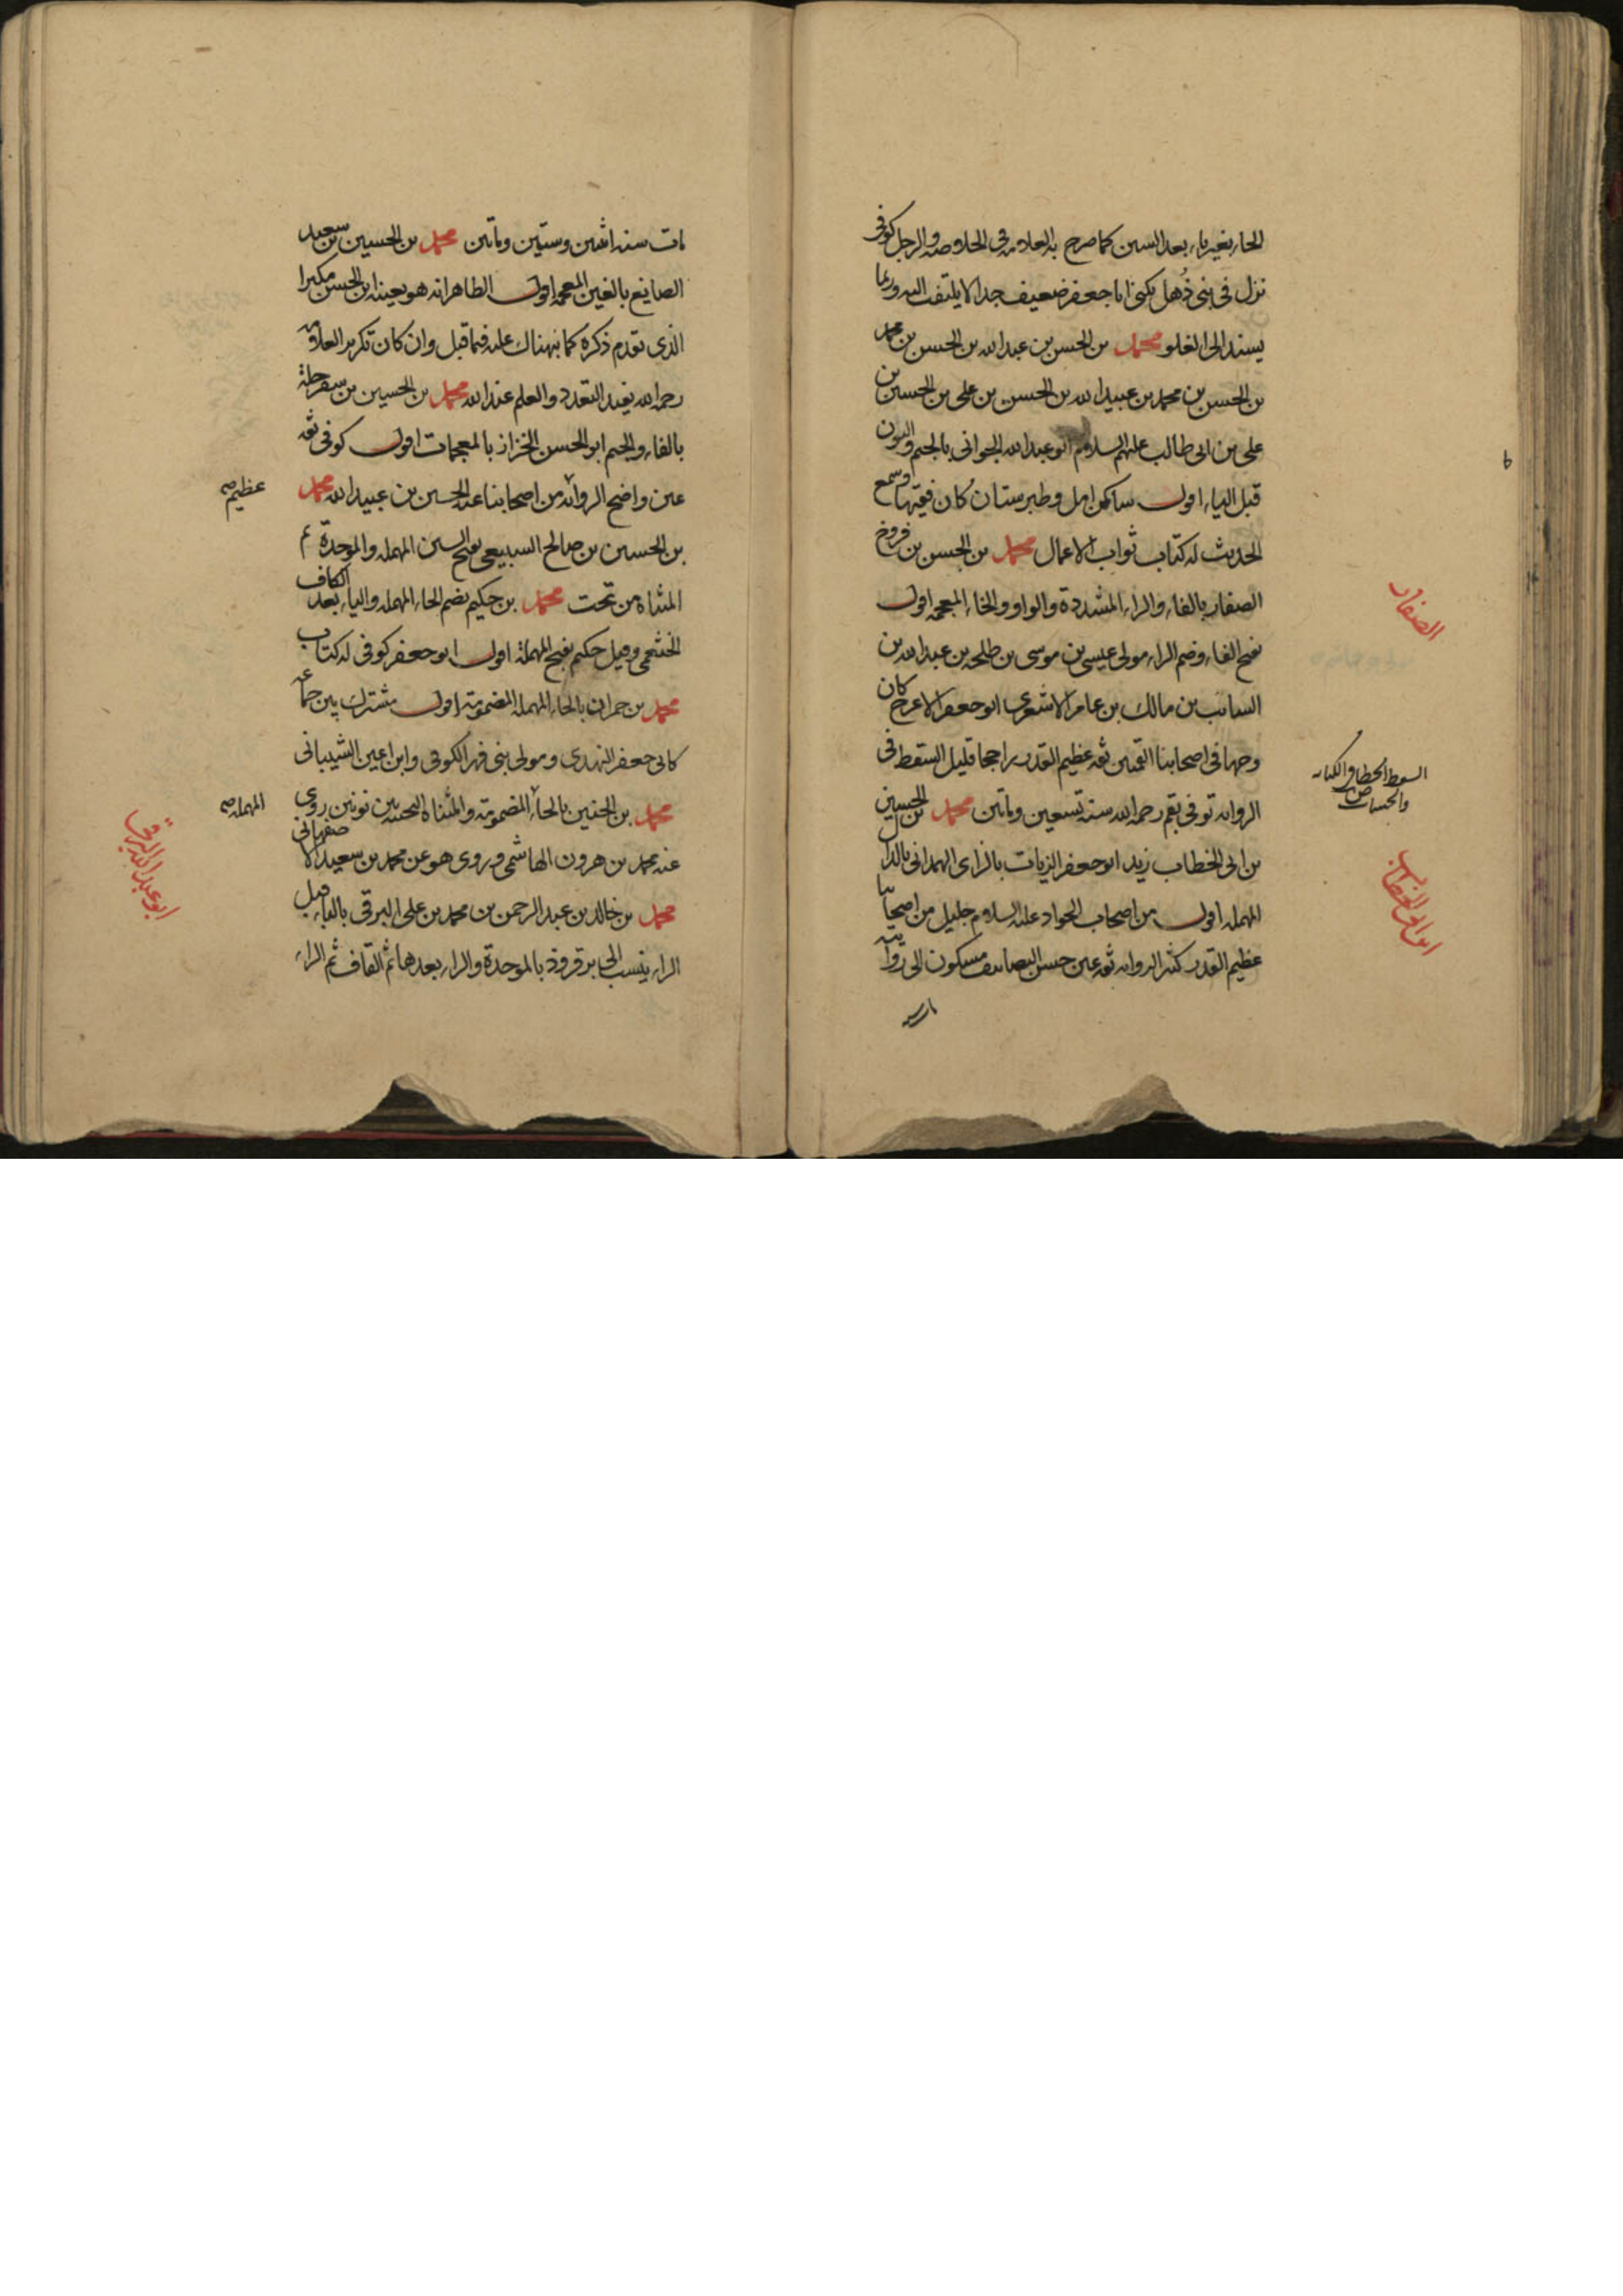 الحاء بغير ياء بعد السين كما صرح به العلامه في الخلاصه والرجل كوفي
نزل في بني ذهل يكنى ابا جعفر ضعيف جدا لا يلتفت اليه وربما
يسند الى الغلو محمد بن الحسن بن عبد الله بن الحسن بن محمد
بن الحسن بن محمد بن عبيد الله بن الحسن بن علي بن الحسين بن
علي بن ابي طالب عليهم السلام ابو عبد الله الجواني بالجيم والنون
قبل الياء اقول ساكن امل وطبرستان كان فقيها وسمع
الحديث له كتاب ثواب الاعمال محمد بن الحسن بن فروخ
الصفار بالفاء والراء المشددة والواو والخاء المعجمه اقول
بفتح الفاء وضم الراء مولى عيسى بن موسى بن طلحه بن عبد الله بن
السائب بن مالك بن عامر الاشعري ابو جعفر الاعرج كان
وجها في اصحابنا القميين ثقه عظيم القدر راجحا قليل السقط في
الروايه توفي بقم رحمه الله سنة تسعين وماتين محمد بن الحسين
بن ابي الخطاب زيد ابو جعفر الزيات بالزاي الهمداني بالدال
المهمله اقول من اصحاب الجواد عليه السلام جليل من اصحابنا
عظيم القدر كثير الروايه ثقه عين حسن التصانيف مسكون الى روايته
الصفار
ابن ابي الخطاب
مات سنه اثنين وستين وماتين محمد بن الحسين بن سعيد
الصايغ بالغين المعجمه اقول الظاهر انه هو بعينه ابن الحسن مكبرا
الذي تقدم ذكره كما نبهناك عليه فيما قبل وان كان تكرير العلامة
رحمه الله يفيد التعدد والعلم عند الله محمد بن الحسين بن سفرجلة
بالفاء والجيم ابو الحسن الخزاز بالمعجمات اقول كوفي ثقه
عين واضح الرواية من اصحابنا عنه الحسين بن عبيد الله محمد
بن الحسين بن صالح السبيعي بفتح السين المهمله والموحدة ثم
المثناة من تحت محمد بن حكيم بضم الحاء المهمله والياء بعد الكاف
الخثعمي وقيل حكيم بفتح المهملة اقول ابو جعفر كوفي له كتاب
محمد بن حمران بالحاء المهملة المضمومة اقول مشترك بين جماعه
كابي جعفر النهدي ومولى بني فهر الكوفي وابن اعين الشيباني
محمد بن الحنين بالحاء المضمومة والمثناة التحتيه بين نونين روى
عنه محمد بن هرون الهاشمي وروى هو عن محمد بن سعيد الاصفهاني
محمد بن خالد بن عبد الرحمن بن محمد بن علي البرقي بالباء قبل
الراء ينسب الى برقروذ بالموحدة والراء بعدها ثم القاف ثم الراء
عظيم صح
المهمله صح
ابو عبد الله البرقي